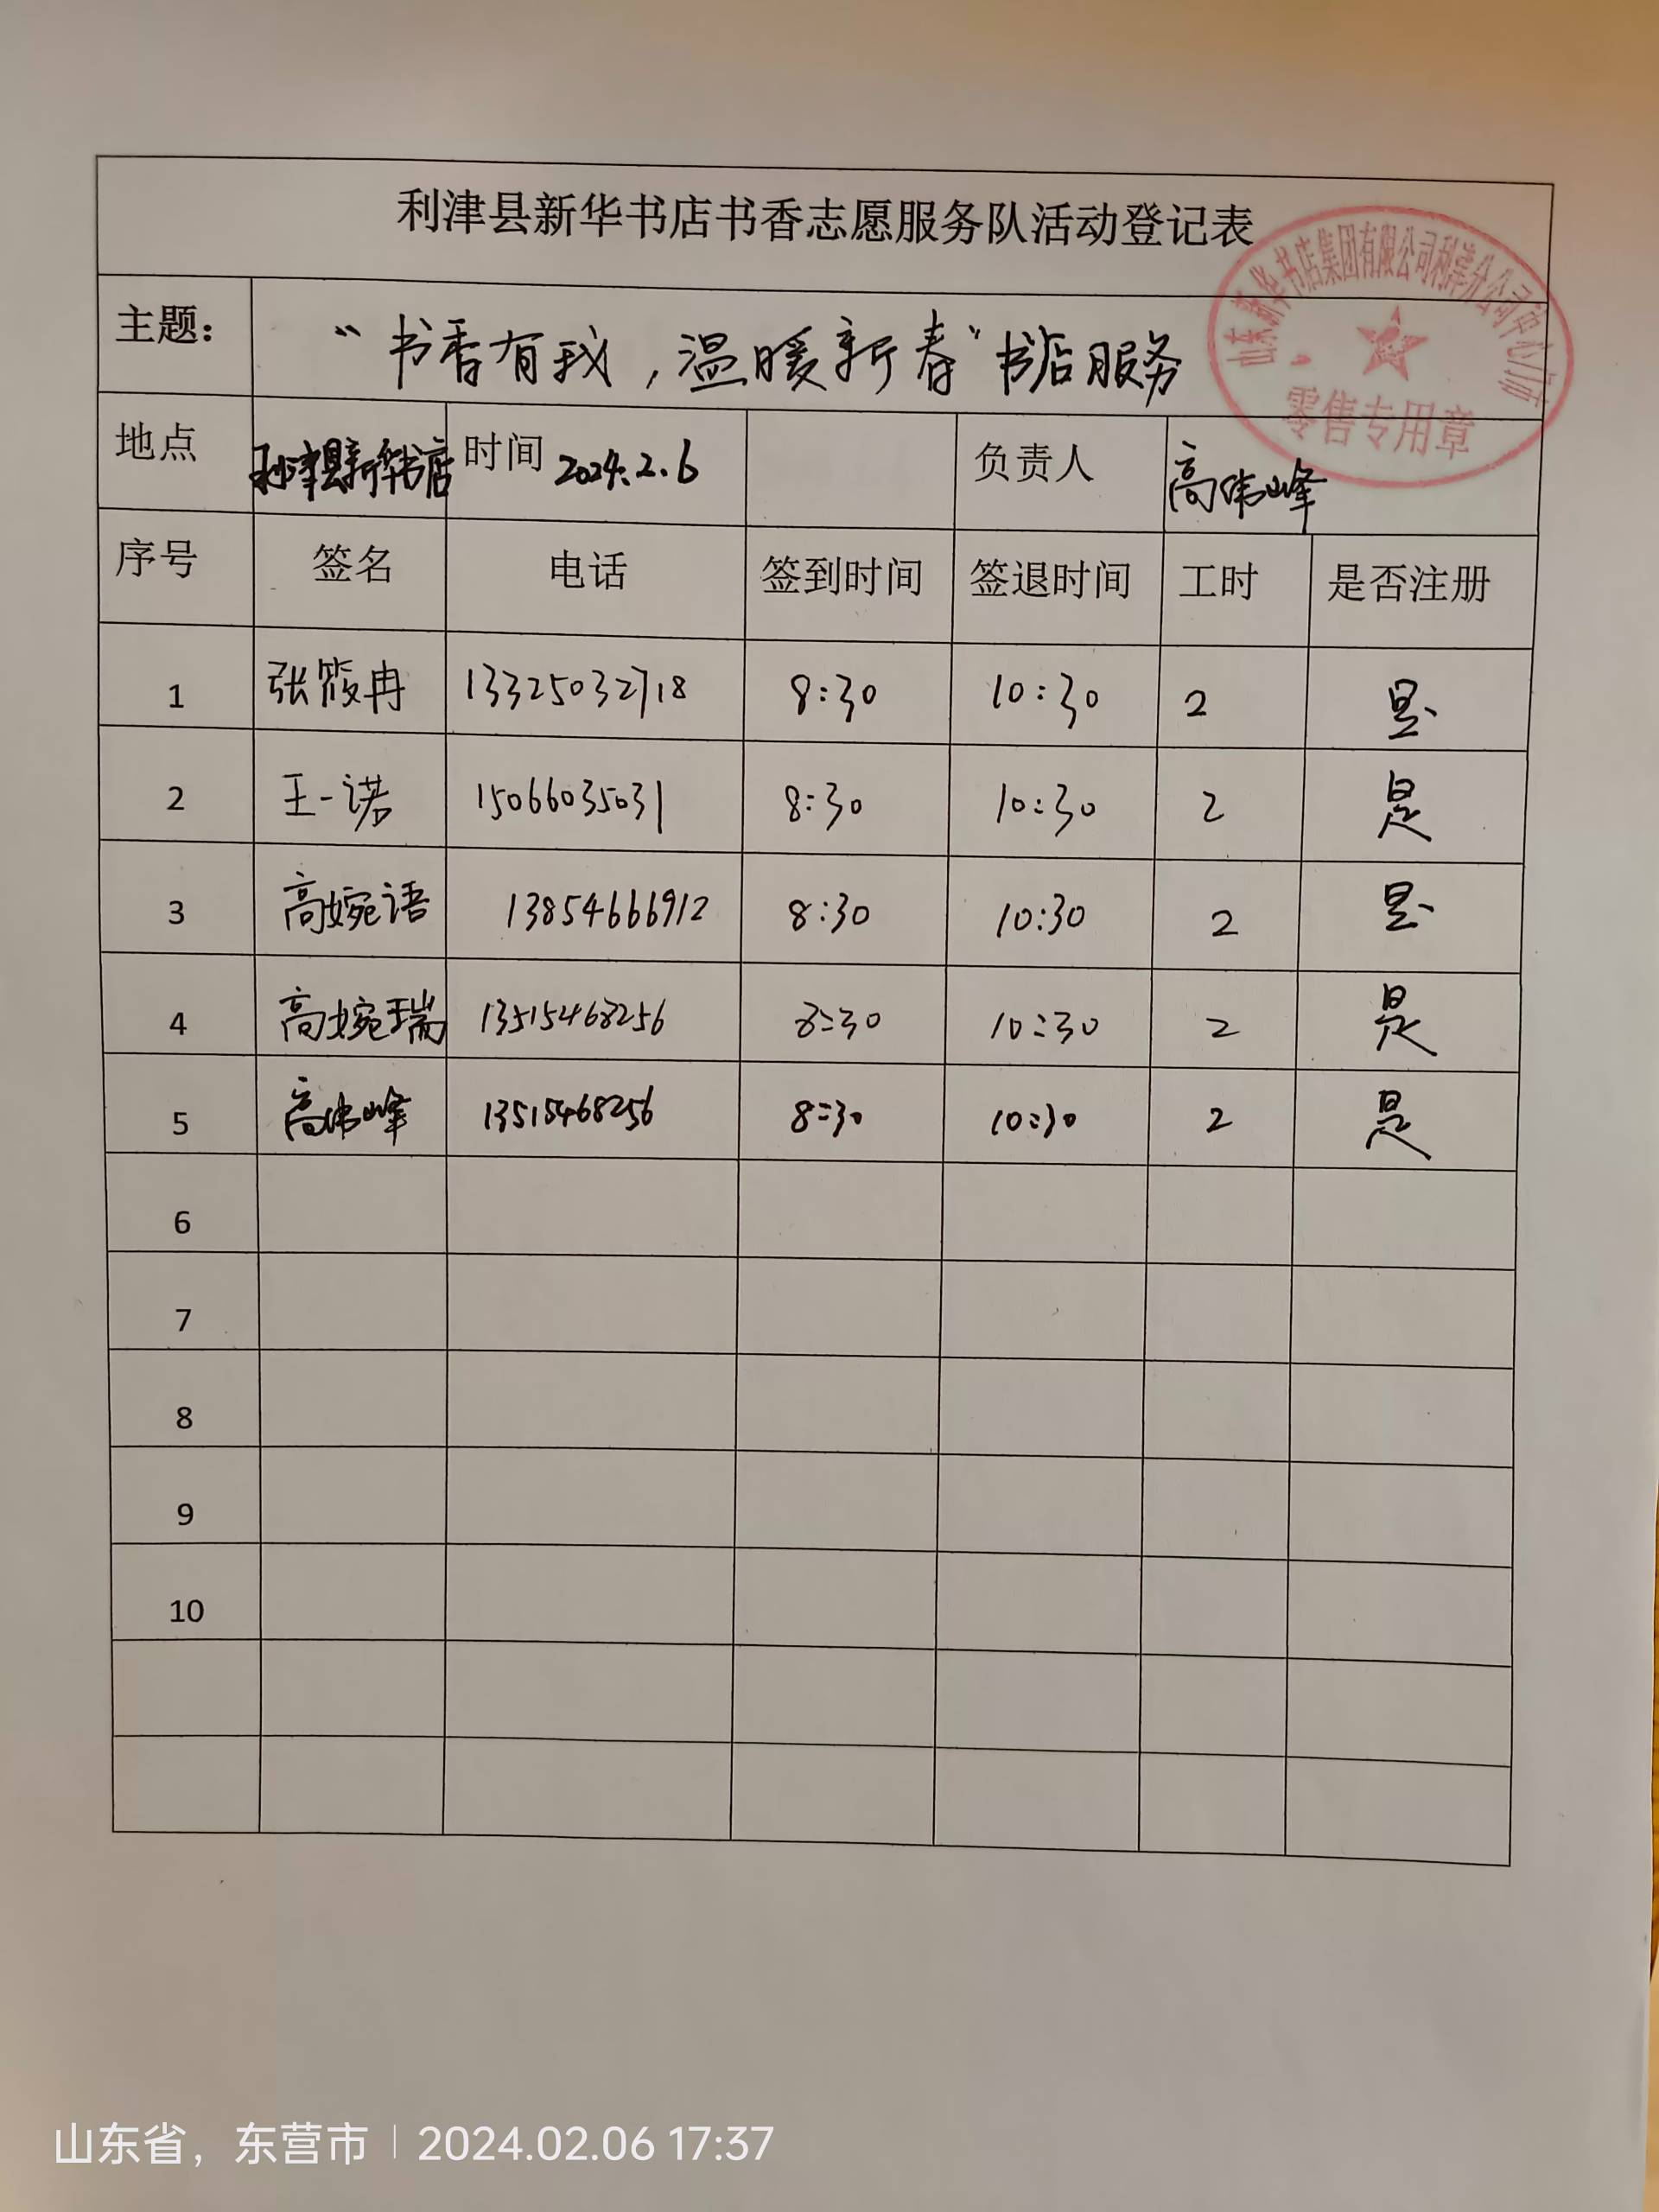 利津县新华书店书香志愿服务队活动登记表
山东新华书店集团有限公司利津分公司中心门店
零售专用章
主题： “书香有我，温暖新春”书店服务
地点 利津县新华书店 时间 2024.2.6 负责人 高伟峰
序号 签名 电话 签到时间 签退时间 工时 是否注册
1 张筱冉 13325032718 8:30 10:30 2 是
2 王一诺 15066035031 8:30 10:30 2 是
3 高婉语 13854666912 8:30 10:30 2 是
4 高婉瑞 13515468256 8:30 10:30 2 是
5 高伟峰 13515468256 8:30 10:30 2 是
6
7
8
9
10
山东省，东营市 | 2024.02.06 17:37